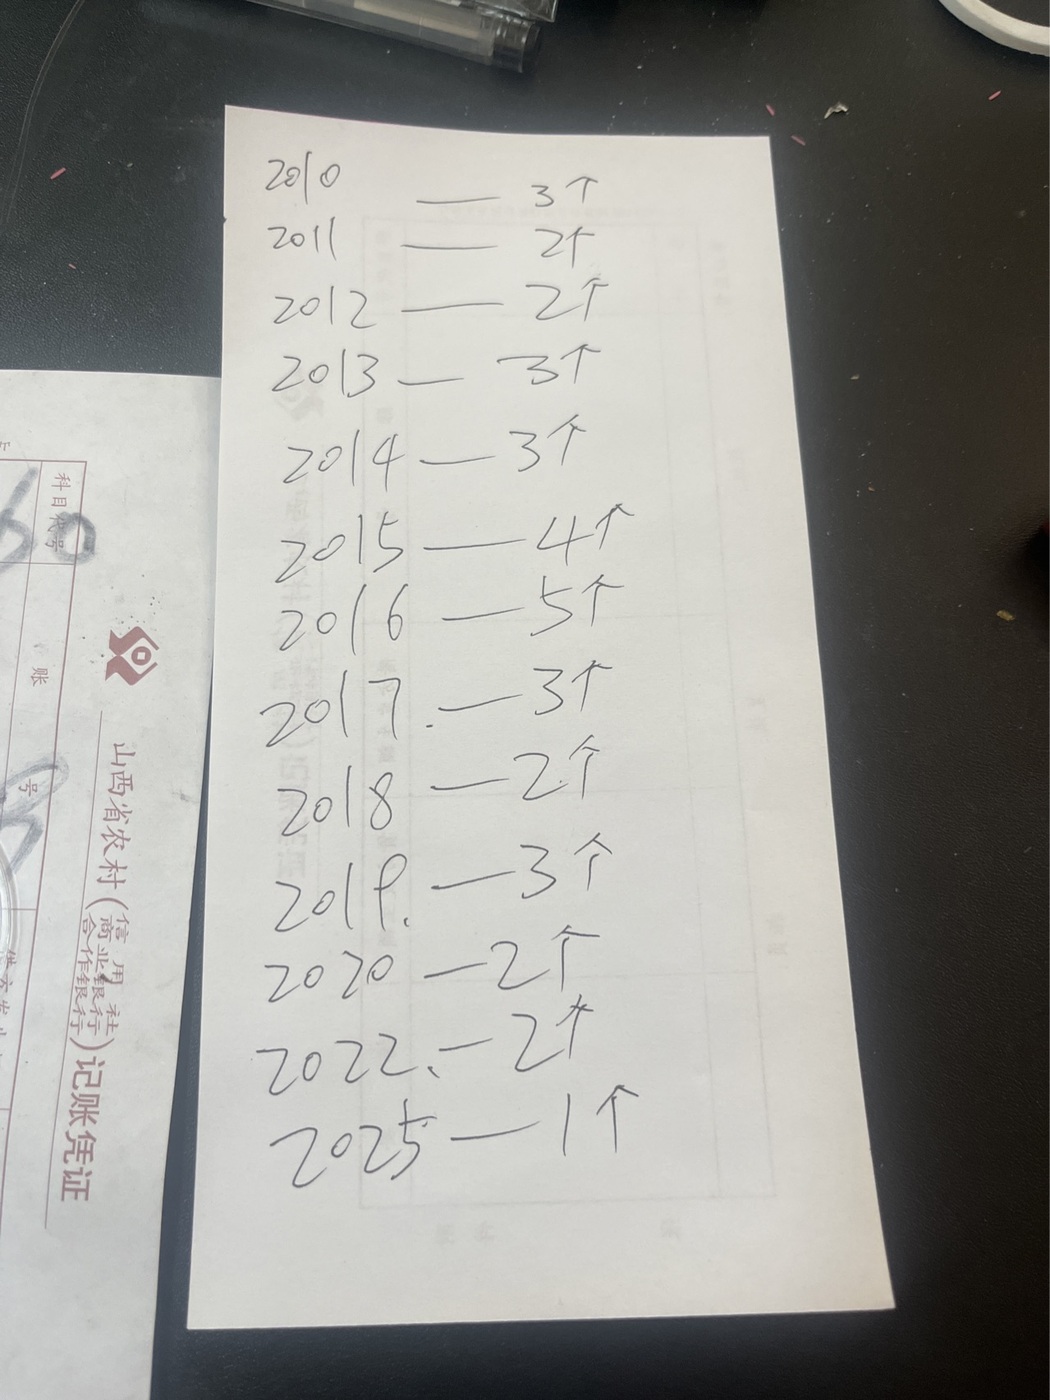 2010 — 3个
2011 — 2个
2012 — 2个
2013 — 3个
2014 — 3个
2015 — 4个
2016 — 5个
2017. — 3个
2018 — 2个
2019. — 3个
2020 — 2个
2022. — 2个
2025 — 1个
科目代号
账
号
山西省农村(信用社
商业银行
合作银行)记账凭证